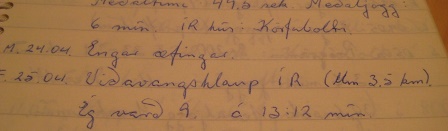 Meðaltími: 44,3 sek Meðalpúls:
6 mín. ÍR hús: Körfubolti
M. 24.04. Engar æfingar.
F. 25.04. Víðavangshlaup ÍR (Um 3,5 km).
Ég varð 9. á 13:12 mín.